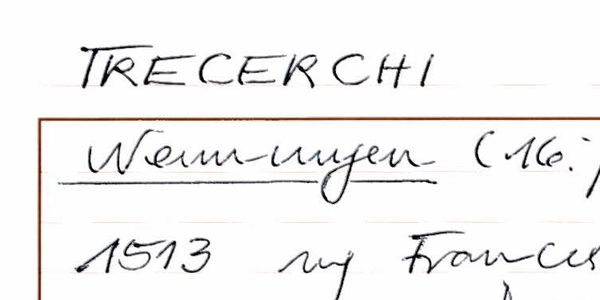 TRECERCHI
Nennungen (16.
1513 rg Frances